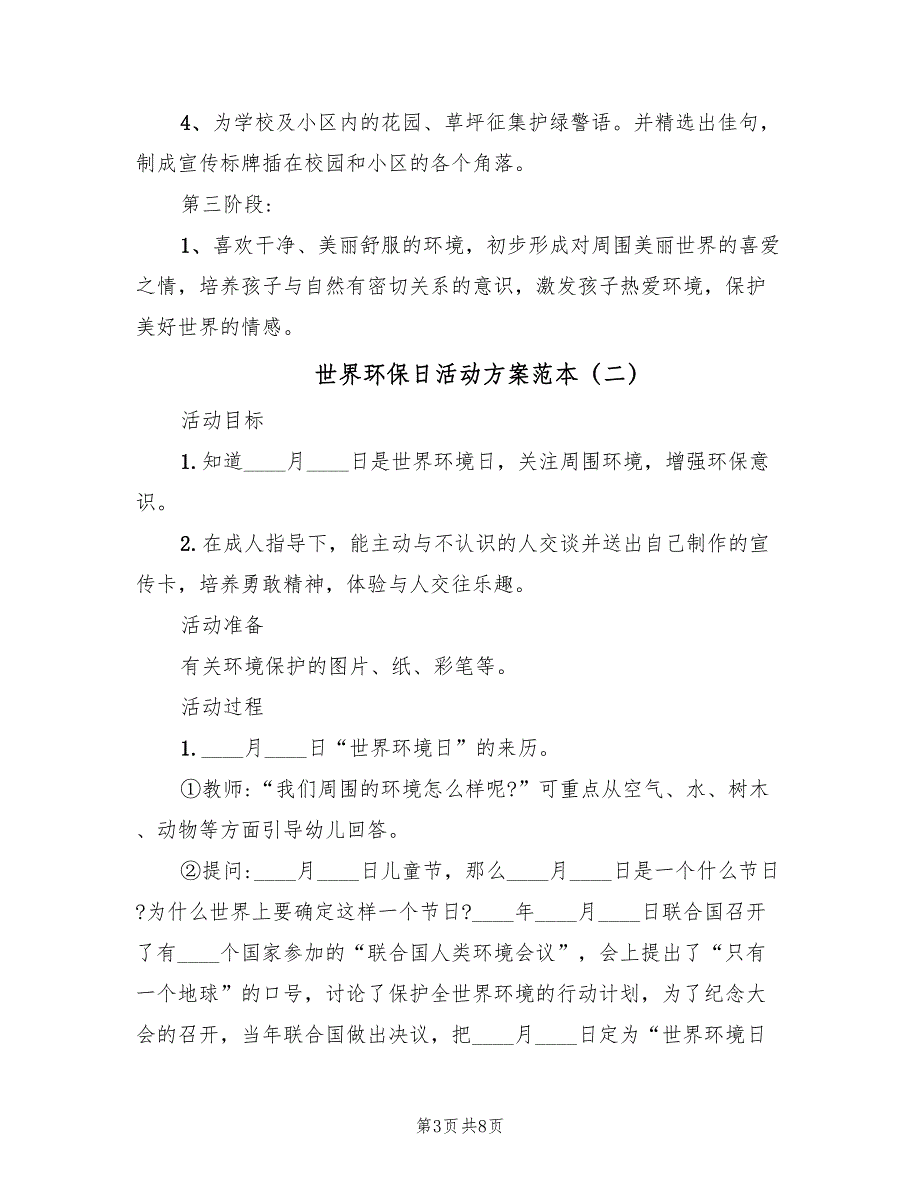 4、为学校及小区内的花园、草坪征集护绿警语。并精选出佳句，
制成宣传标牌插在校园和小区的各个角落。
第三阶段:
1、喜欢干净、美丽舒服的环境，初步形成对周围美丽世界的喜爱
之情，培养孩子与自然有密切关系的意识，激发孩子热爱环境，保护
美好世界的情感。
世界环保日活动方案范本（二）
活动目标
1.知道____月____日是世界环境日，关注周围环境，增强环保意
识。
2.在成人指导下，能主动与不认识的人交谈并送出自己制作的宣
传卡，培养勇敢精神，体验与人交往乐趣。
活动准备
有关环境保护的图片、纸、彩笔等。
活动过程
1.____月____日“世界环境日”的来历。
①教师:“我们周围的环境怎么样呢?”可重点从空气、水、树木
、动物等方面引导幼儿回答。
②提问:____月____日儿童节，那么____月____日是一个什么节日
?为什么世界上要确定这样一个节日?____年____月____日联合国召开
了有____个国家参加的“联合国人类环境会议”，会上提出了“只有
一个地球”的口号，讨论了保护全世界环境的行动计划，为了纪念大
会的召开，当年联合国做出决议，把____月____日定为“世界环境日
第3页 共8页